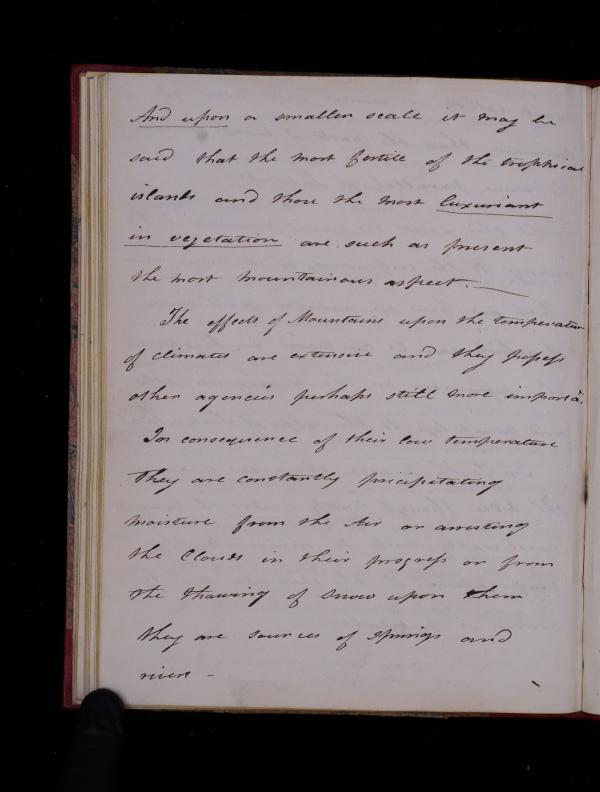 And upon a smaller scale it may be
said that the most fertile of the trophical
islands and those the most luxuriant
in vegetation are such as present
the most mountainous aspect. —
The effects of Mountains upon the temperature
of climates are extensive and they possess
other agencies perhaps still more importa
In consequence of their low temperature
They are constantly precipitating
moisture from the Air or arresting
the Clouds in their progress or from
the thawing of snow upon them
they are sources of springs and
rivers –